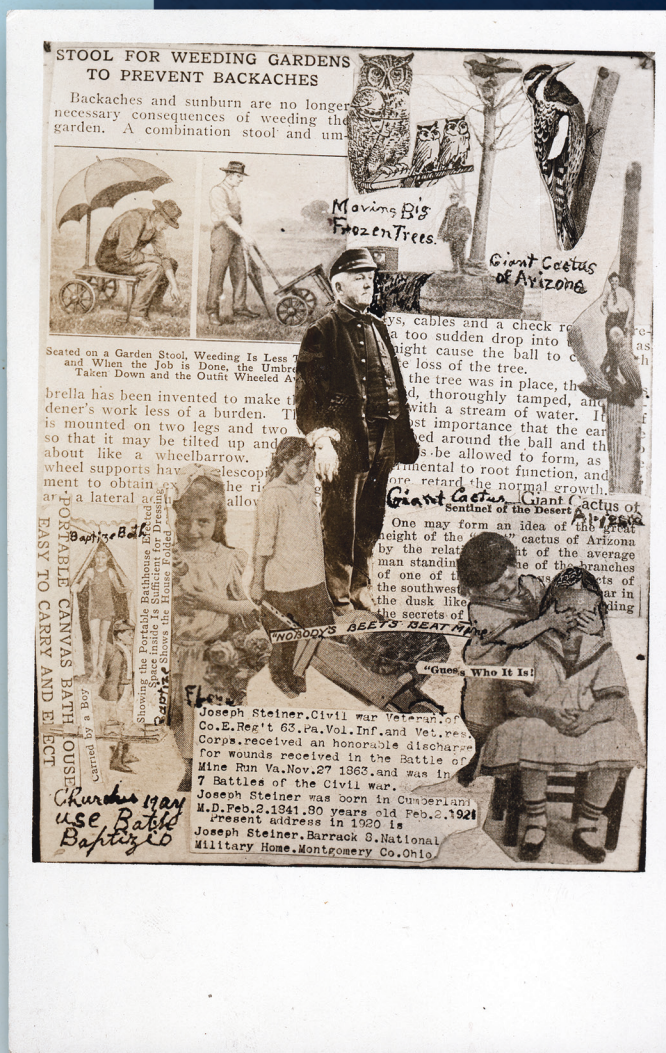 STOOL FOR WEEDING GARDENS
TO PREVENT BACKACHES
Backaches and sunburn are no longer
necessary consequences of weeding the
garden. A combination stool and um-
Moving Big
Frozen Trees.
Giant Cactus
of Arizona
Seated on a Garden Stool, Weeding Is Less
and When the Job is Done, the Umbre
Taken Down and the Outfit Wheeled A
brella has been invented to make th
dener's work less of a burden. Th
is mounted on two legs and two
so that it may be tilted up and
about like a wheelbarrow.
wheel supports hav elescopi
ment to obtain ex the ri
a lateral a allow
ys, cables and a check ro
a too sudden drop into
ight cause the ball to c
e loss of the tree.
the tree was in place, the
d, thoroughly tamped, and
with a stream of water. It
ost importance that the ear
ed around the ball and th
s be allowed to form, as
rimental to root function, and
ore retard the normal growth.
re-
as
Giant Cactus Giant Cactus of
Sentinel of the Desert
One may form an idea of the great
height of the cactus of Arizona
by the relat ht of the average
man standin ne of the branches
of one of th us cts of
the southwest ear in
the dusk like ding
the secrets of
PORTABLE CANVAS BATH HOUSE
EASY TO CARRY AND E ECT
Baptize Bath
Showing the Portable Bathhouse Erected
Space Inside Is Sufficient for Dressing
Baptize Shows the House Folded
Carried by a Boy
"NOBODY'S BEETS BEAT Mine
"Guess Who It Is!
Churches may
use Bath
Baptized
Joseph Steiner.Civil war Veteran.of
Co.E.Reg't 63.Pa.Vol.Inf.and Vet.res
Corps.received an honorable discharge
for wounds received in the Battle of
Mine Run Va.Nov.27 1863.and was in
7 Battles of the Civil war.
Joseph Steiner was born in Cumberland
M.D.Feb.2.1841.80 years old Feb.2.1921
Present address in 1920 is
Joseph Steiner.Barrack S.National
Military Home.Montgomery Co.Ohio